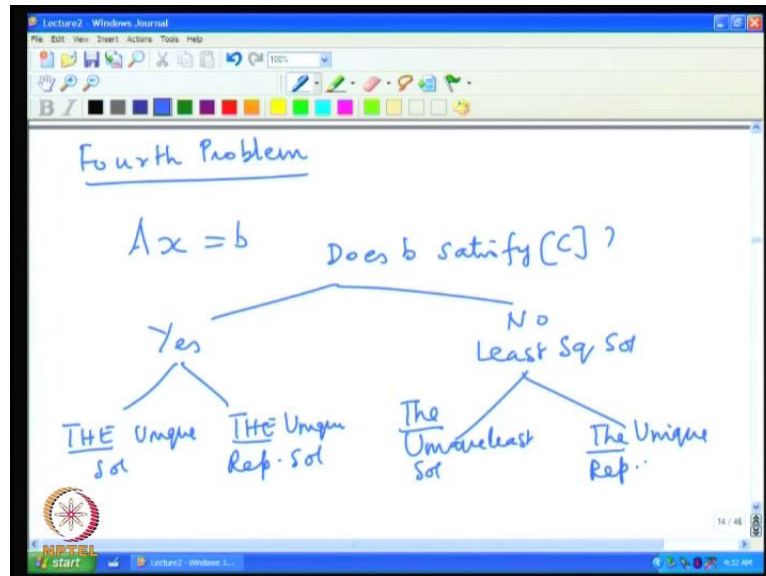 Lecture2 - Windows Journal
File Edit View Insert Actions Tools Help
100%
B I
Fourth Problem
Ax = b
Does b satisfy [C] ?
Yes
No
Least Sq Sol
THE Unique
Sol
THE Unique
Rep. Sol
The
least
Sol
The Unique
Rep..
14 / 46
NPTEL
start
Lecture2 - Windows J...
4:32 AM